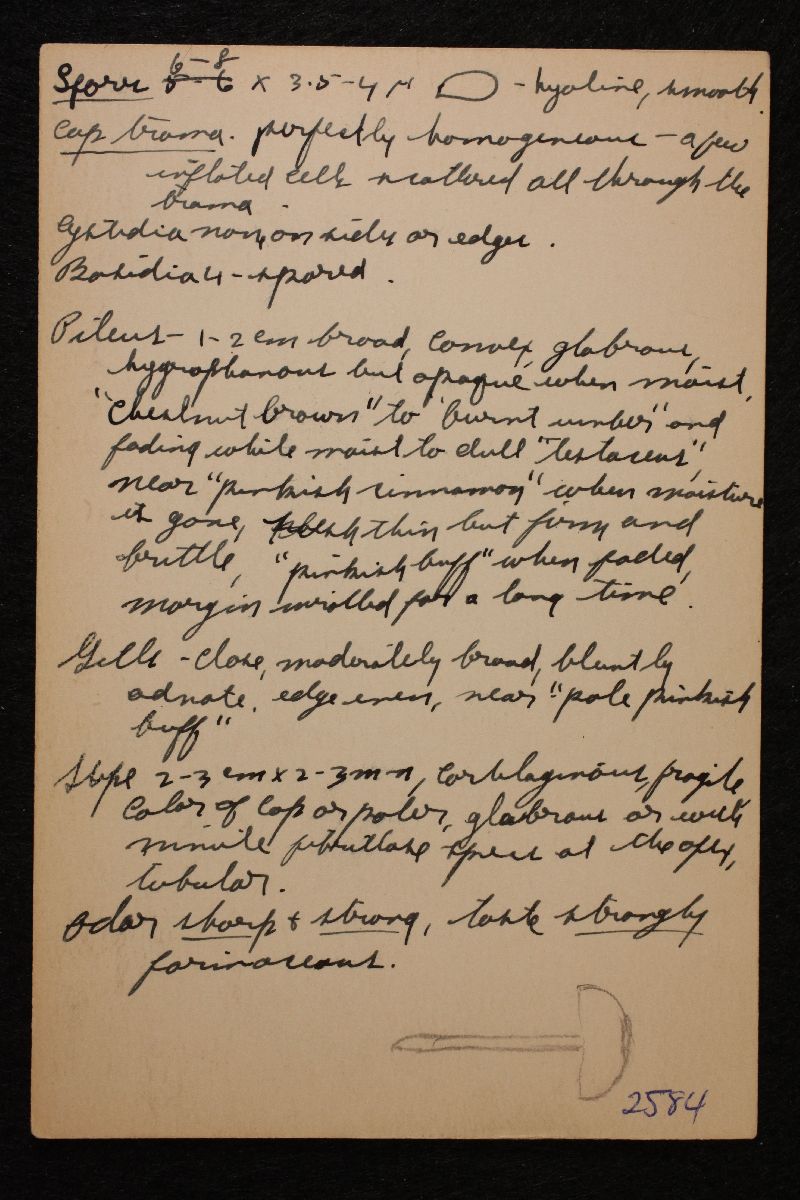 Spores 6-8 x 3.5-4 µ - hyaline, smooth.
Cap trama. perfectly homogeneous - a few
inflated cells scattered all through the
trama.
Cystidia none on sides or edges.
Basidia 4-spored.
Pileus - 1-2 cm broad, convex, glabrous,
hygrophanous but opaque when moist,
"Chestnut brown" to "burnt umber" and
fading while moist to dull "testaceus",
near "pinkish cinnamon" when moisture
is gone, flesh thin but firm and
brittle, "pinkish buff" when faded,
margin inrolled for a long time.
Gills - close, moderately broad, bluntly
adnate, edge even, near "pale pinkish
buff"
Stipe 2-3 cm x 2-3 mm, cartilaginous, fragile
Color of Cap or paler, glabrous or with
minute fibrillose specs at the apex,
tubular.
Odor sharp & strong, taste strongly
farinaceous.
2584